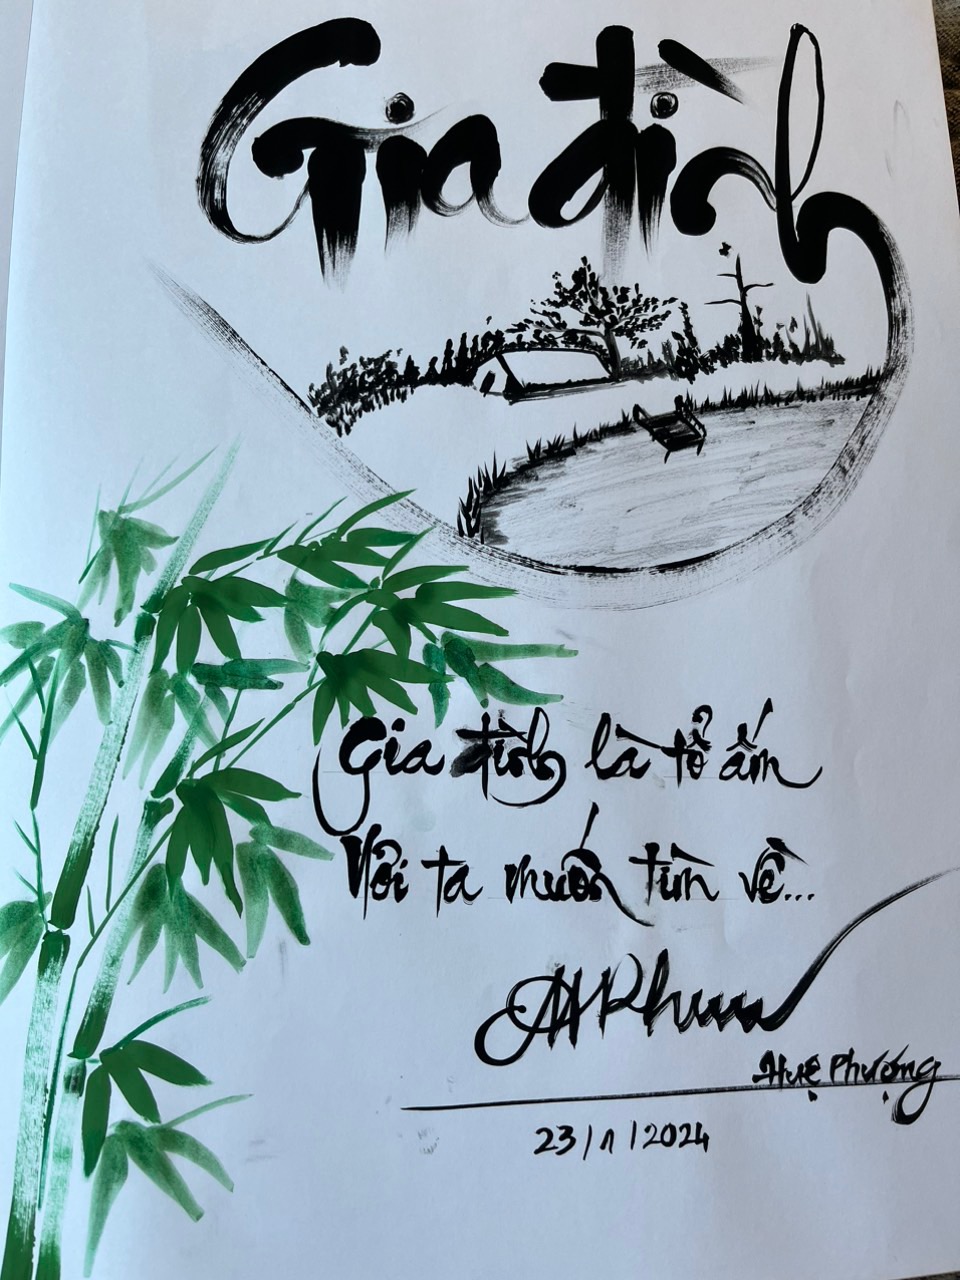 Gia đình
Gia đình là tổ ấm
Nơi ta muốn tìm về...
Huệ Phượng
23/1/2024